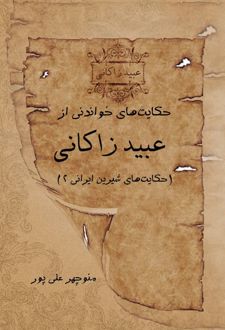 عبید زاکانی
حکایت‌های خواندنی از
عبید زاکانی
(حکایت‌های شیرین ایرانی ۲)
منوچهر علی پور